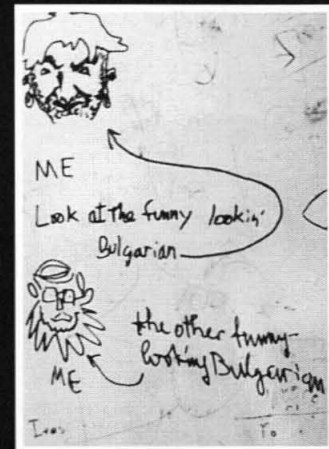 ME
Look at the funny lookin'
Bulgarian
the other funny-
looking Bulgarian
ME